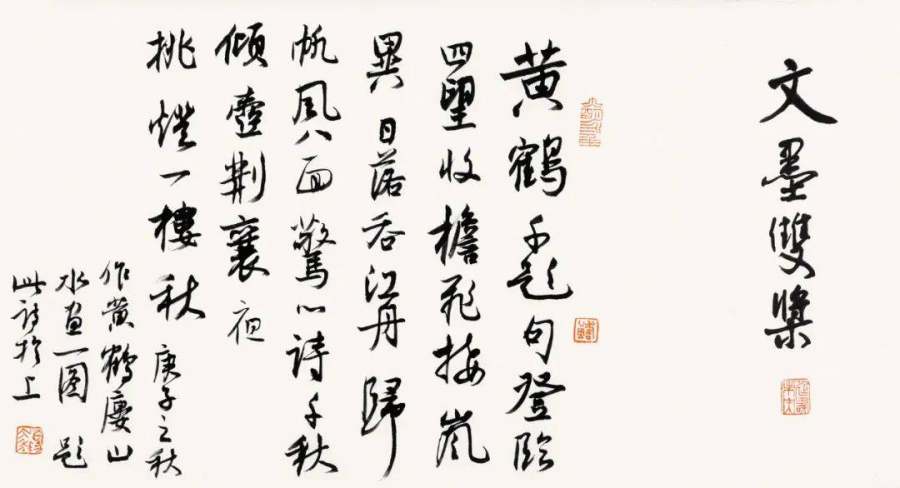 文墨雙槳
黄鶴千題句登臨
四望收檐飛接嵐
異日落吞江舟歸
帆風八面驚心詩千秋
傾壺荆襄夜
挑燈一樓秋 庚子之秋
作黄鶴廔山
水畫一图 題
此詩於上